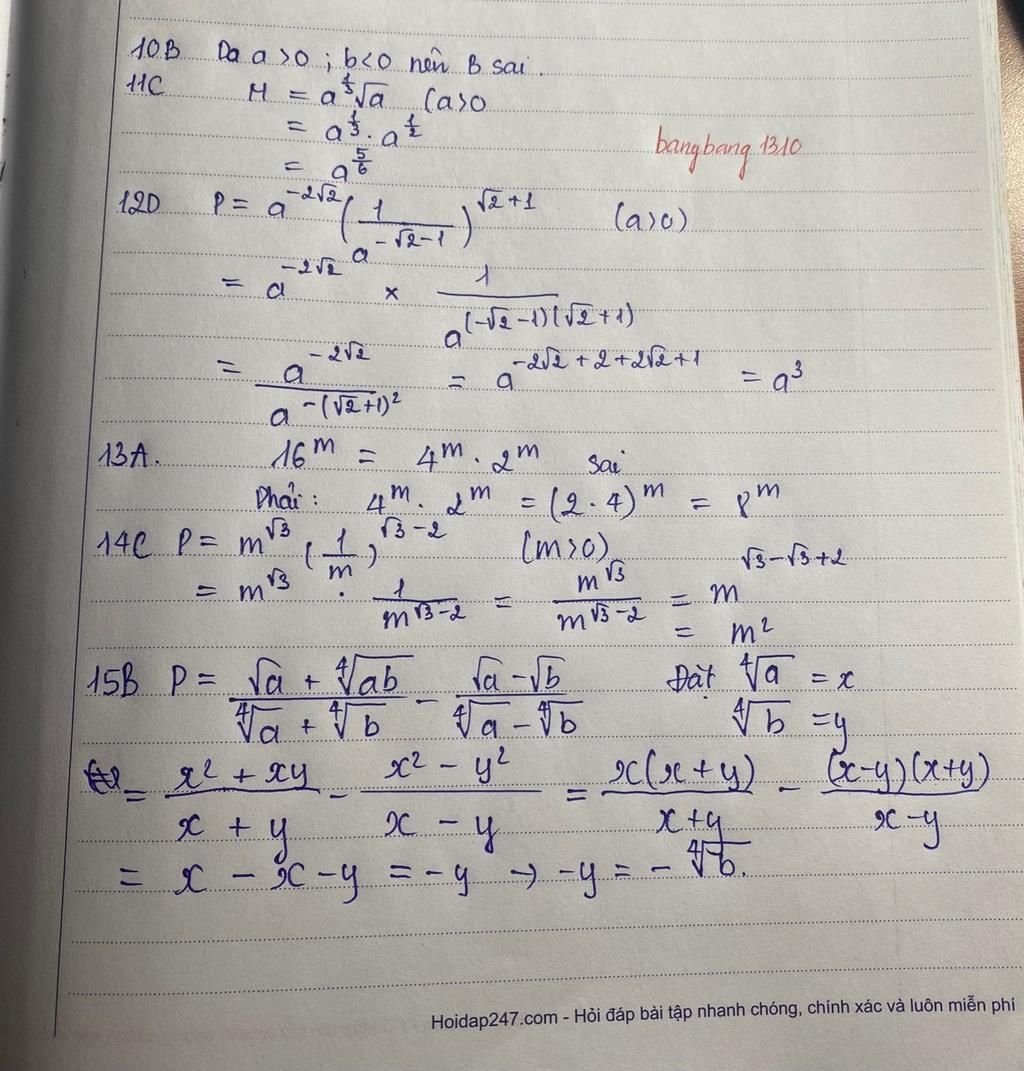 10B Da a > 0 ; b < 0 nên B sai.
11C M = a^{1/3}√a (a>0
= a^{1/3} . a^{1/2}
= a^{5/6}
bangbang 1310
12D P = a^{-2√2} (1/a^{-√2-1})^{√2+1} (a>0)
= a^{-2√2} × 1/a^{(-√2-1)(√2+1)}
= a^{-2√2}/a^{-(√2+1)²} = a^{-2√2+2+2√2+1} = a³
13A. 16^m = 4^m . 2^m sai
Phải: 4^m . 2^m = (2.4)^m = 8^m
14C P = m^{√3} (1/m)^{√3-2} (m>0)
= m^{√3} . 1/m^{√3-2} = m^{√3}/m^{√3-2} = m^{√3-√3+2}
= m²
15B P = (√a + ∜ab)/(∜a + ∜b) - (√a - √b)/(∜a - ∜b) Đặt ∜a = x
∜b = y
= (x² + xy)/(x + y) - (x² - y²)/(x - y) = x(x+y)/(x+y) - (x-y)(x+y)/(x-y)
= x - x - y = -y → -y = -∜b.
Hoidap247.com - Hỏi đáp bài tập nhanh chóng, chính xác và luôn miễn phí